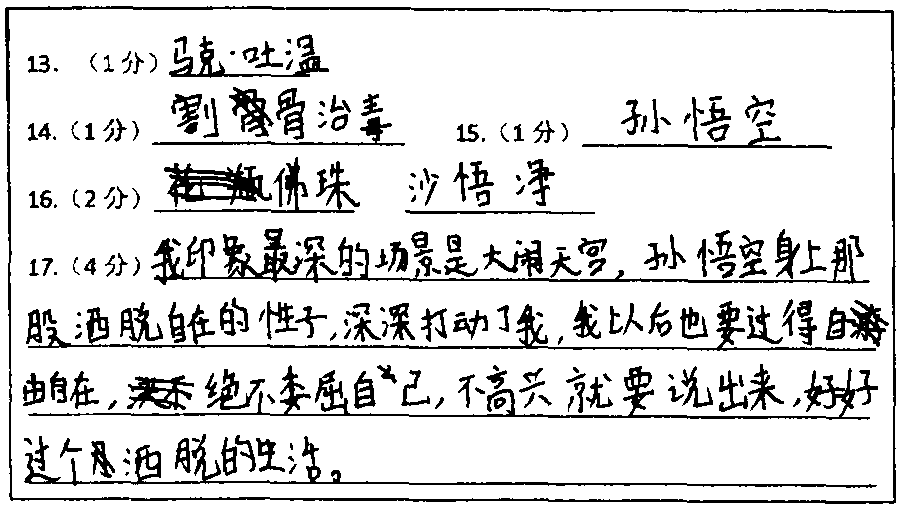 13. （1分）马克·吐温
14.（1分）割骨治毒 15.（1分）孙悟空
16.（2分）佛珠 沙悟净
17.（4分）我印象最深的场景是大闹天宫，孙悟空身上那
股洒脱自在的性子，深深打动了我，我以后也要过得自
由自在，绝不委屈自己，不高兴就要说出来，好好
过个洒脱的生活。